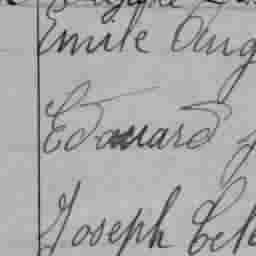 Emile Aug
Edouard
Joseph Cel